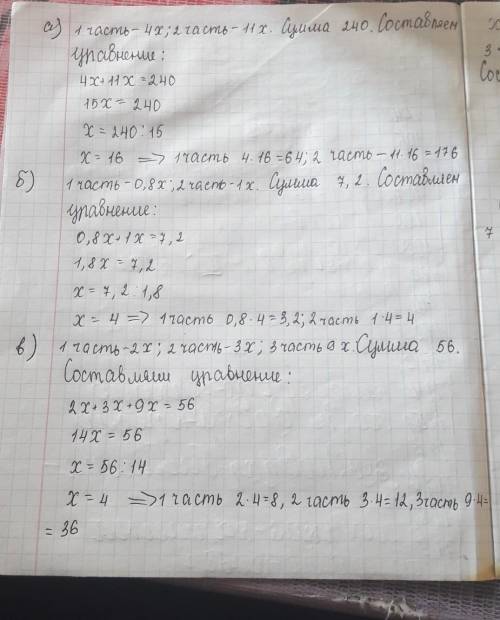 а) 1 часть - 4х; 2 часть - 11х. Сумма 240. Составляем
уравнение:
4х+11х=240
15х = 240
х = 240 : 15
х = 16 => 1 часть 4·16=64; 2 часть - 11·16=176
б) 1 часть - 0,8х; 2 часть - 1х. Сумма 7,2. Составляем
уравнение:
0,8х+1х=7,2
1,8х = 7,2
х = 7,2 : 1,8
х = 4 => 1 часть 0,8·4=3,2; 2 часть 1·4=4
в) 1 часть - 2х; 2 часть - 3х; 3 часть 9х. Сумма 56.
Составляем уравнение:
2х+3х+9х = 56
14х = 56
х = 56 : 14
х = 4 => 1 часть 2·4=8, 2 часть 3·4=12, 3 часть 9·4=
= 36
3
7